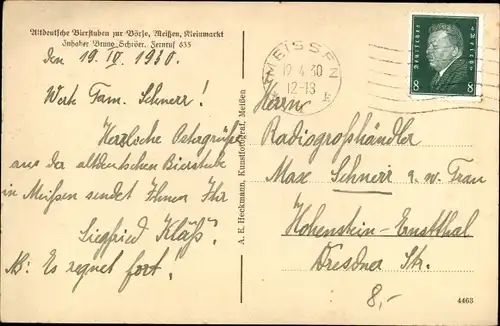 Altdeutsche Bierstuben zur Börse, Meißen, Kleinmarkt
Inhaber Bruno Schröer. Fernruf 635
den 19. IV. 1930.
Werte Fam. Schnerr!
Herzliche Ostergrüße
aus der altdeutschen Bierstube
in Meißen sendet Ihnen Ihr
Siegfried Klaß.
NB: Es regnet fort!
A. E. Heckmann, Kunstfotograf, Meißen
MEISSEN
19.4.30
12-13
Deutsches Reich
8 8
Herrn
Radiogroßhändler
Max Schnerr u. w. Frau
Hohenstein-Ernstthal
Dresdner Str.
8,-
4463